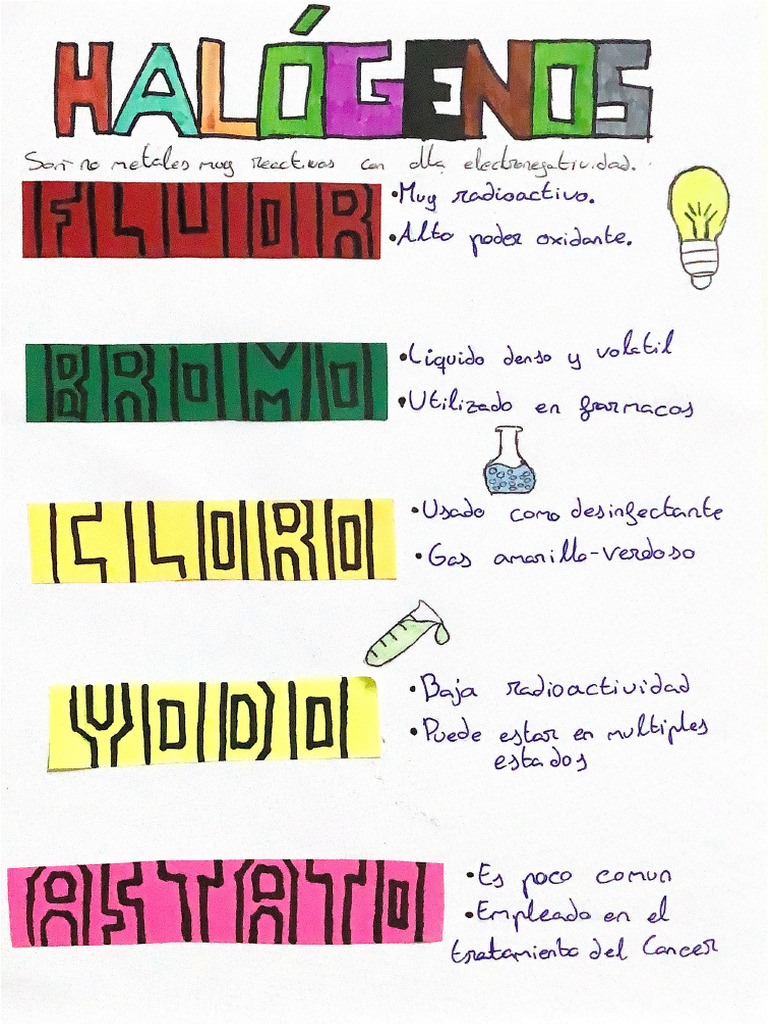 HALÓGENOS
Son no metales muy reactivos con alta electronegatividad.
FLUOR
• Muy radioactivo.
• Alto poder oxidante.
BROMO
• Líquido denso y volatil
• Utilizado en farmacos
CLORO
• Usado como desinfectante
• Gas amarillo-verdoso
YODO
• Baja radioactividad
• Puede estar en multiples
estados
ASTATO
• Es poco comun
• Empleado en el
tratamiento del Cancer